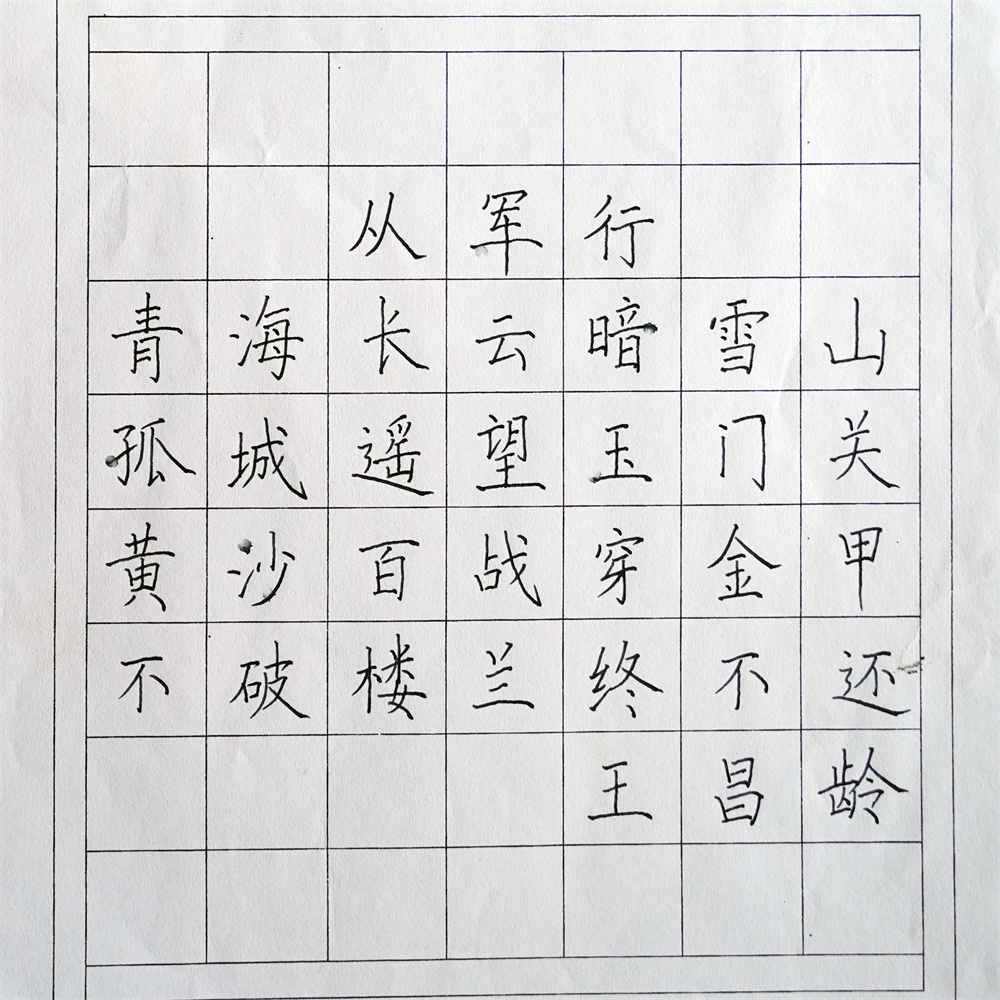 从军行
青海长云暗雪山
孤城遥望玉门关
黄沙百战穿金甲
不破楼兰终不还
王昌龄